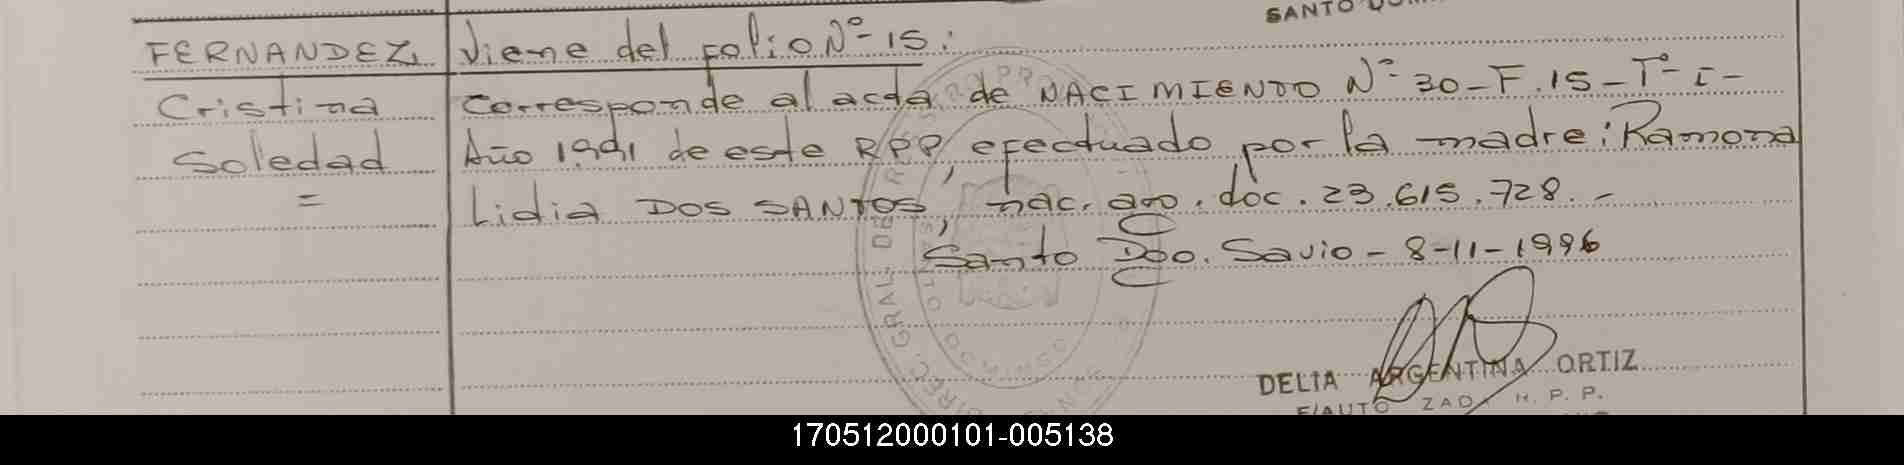 SANTO
FERNANDEZ, Viene del folio Nº 15:
Cristina corresponde al acta de NACIMIENTO Nº 30-F.15-Tº-I-
Soledad Año 1991 de este RPP, efectuado por la madre: Ramona
= Lidia DOS SANTOS, nac. arg. doc. 23.615.728.-
Santo Dgo. Savio - 8-11-1996
DELIA ARGENTINA ORTIZ
170512000101-005138